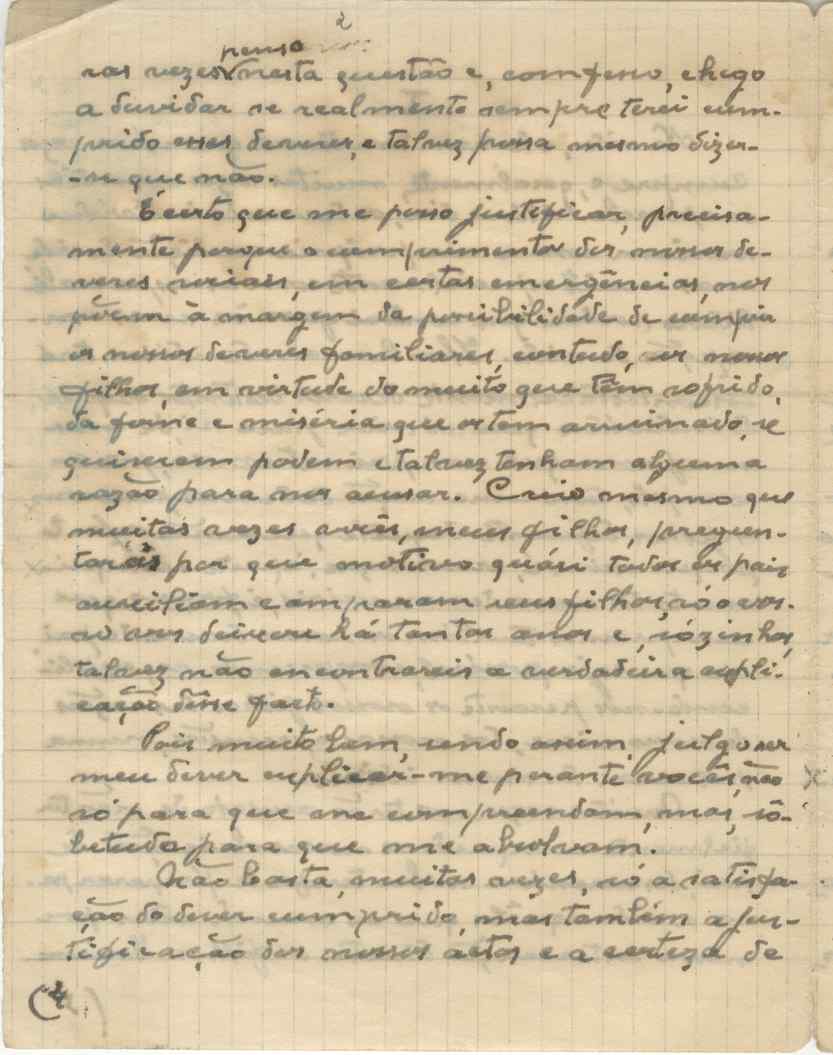 2
penso
ras vezes nesta questão e, confesso, chego
a duvidar se realmente sempre terei cum-
prido esses deveres, e talvez possa mesmo dizer-
-se que não.
É certo que me posso justificar, precisa-
mente porque o cumprimento dos nossos de-
veres sociais, em certas emergências, nos
põem à margem da possibilidade de cumprir
os nossos deveres familiares, contudo, os nossos
filhos, em virtude do muito que têm sofrido,
da fome e miséria que os tem arruinado, se
quiserem podem e talvez tenham alguma
razão para nos acusar. Creio mesmo que
muitas vezes a vós, meus filhos, pregun-
tarás por que motivo quási todos os pais
auxiliam e amparam seus filhos, só o vos-
so vos deixou há tantos anos e, sózinhos,
talvez não encontrareis a verdadeira expli-
cação dêsse facto.
Pois muito bem, sendo assim, julgo ser
meu dever explicar-me perante vocês, não
só para que me compreendam, mas, sô-
betudo para que me absolvam.
Não basta, muitas vezes, só a satisfa-
ção do dever cumprido, mas também a jus-
tificação dos nossos actos e a certeza de